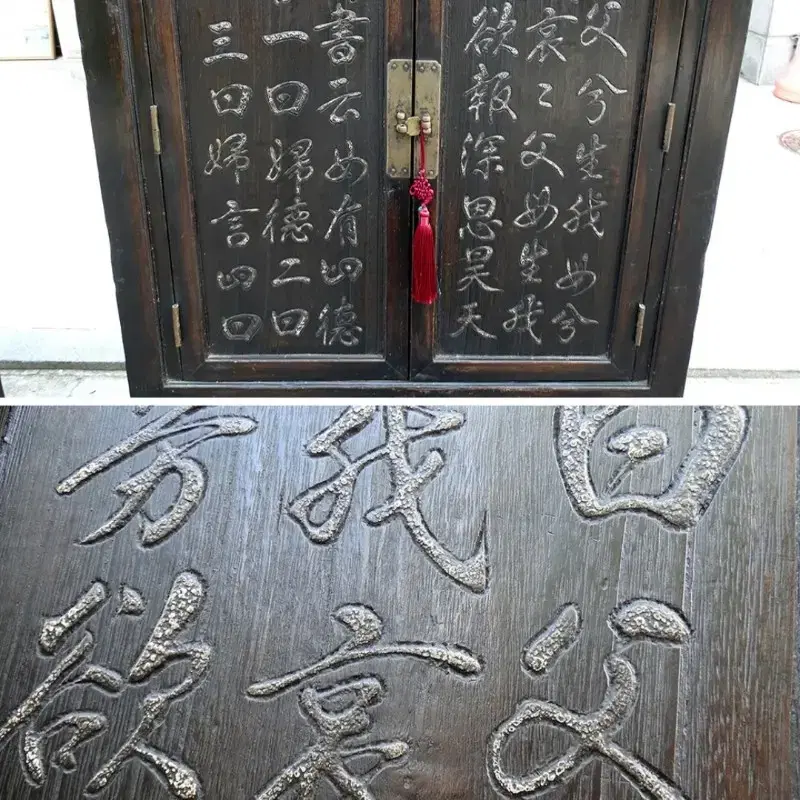 父兮生我母兮
哀〻父母生我
欲報深恩昊天
書云女有四德
一曰婦德二曰
三曰婦言四曰
曰父
我哀
欲